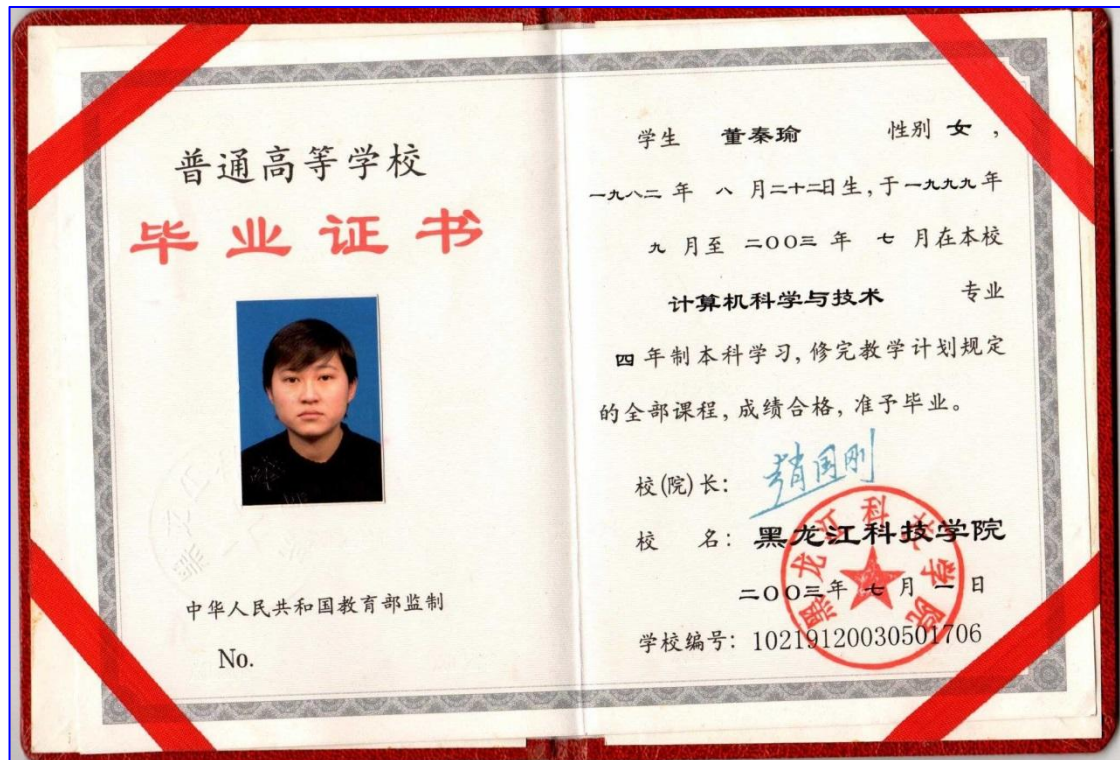 普通高等学校
毕业证书
中华人民共和国教育部监制
No.
学生 董秦瑜 性别 女，
一九八二 年 八 月二十二日生，于一九九九年
九 月至 二〇〇三 年 七 月在本校
计算机科学与技术 专业
四 年制本科学习，修完教学计划规定
的全部课程，成绩合格，准予毕业。
校(院)长： 赵国刚
校 名： 黑龙江科技学院
二〇〇三年 七 月 一 日
学校编号： 102191200305017​06
黑龙江科技学院